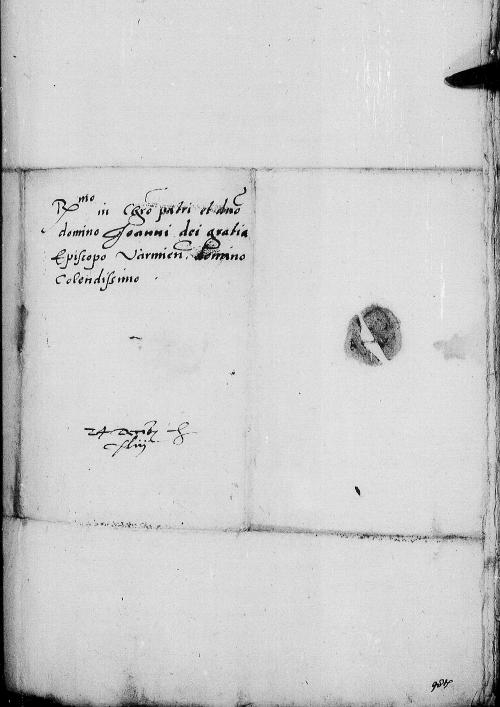 R^mo in Chro patri et dno
domino Joanni dei gratia
Episcopo Varmien. domino
Colendissimo .